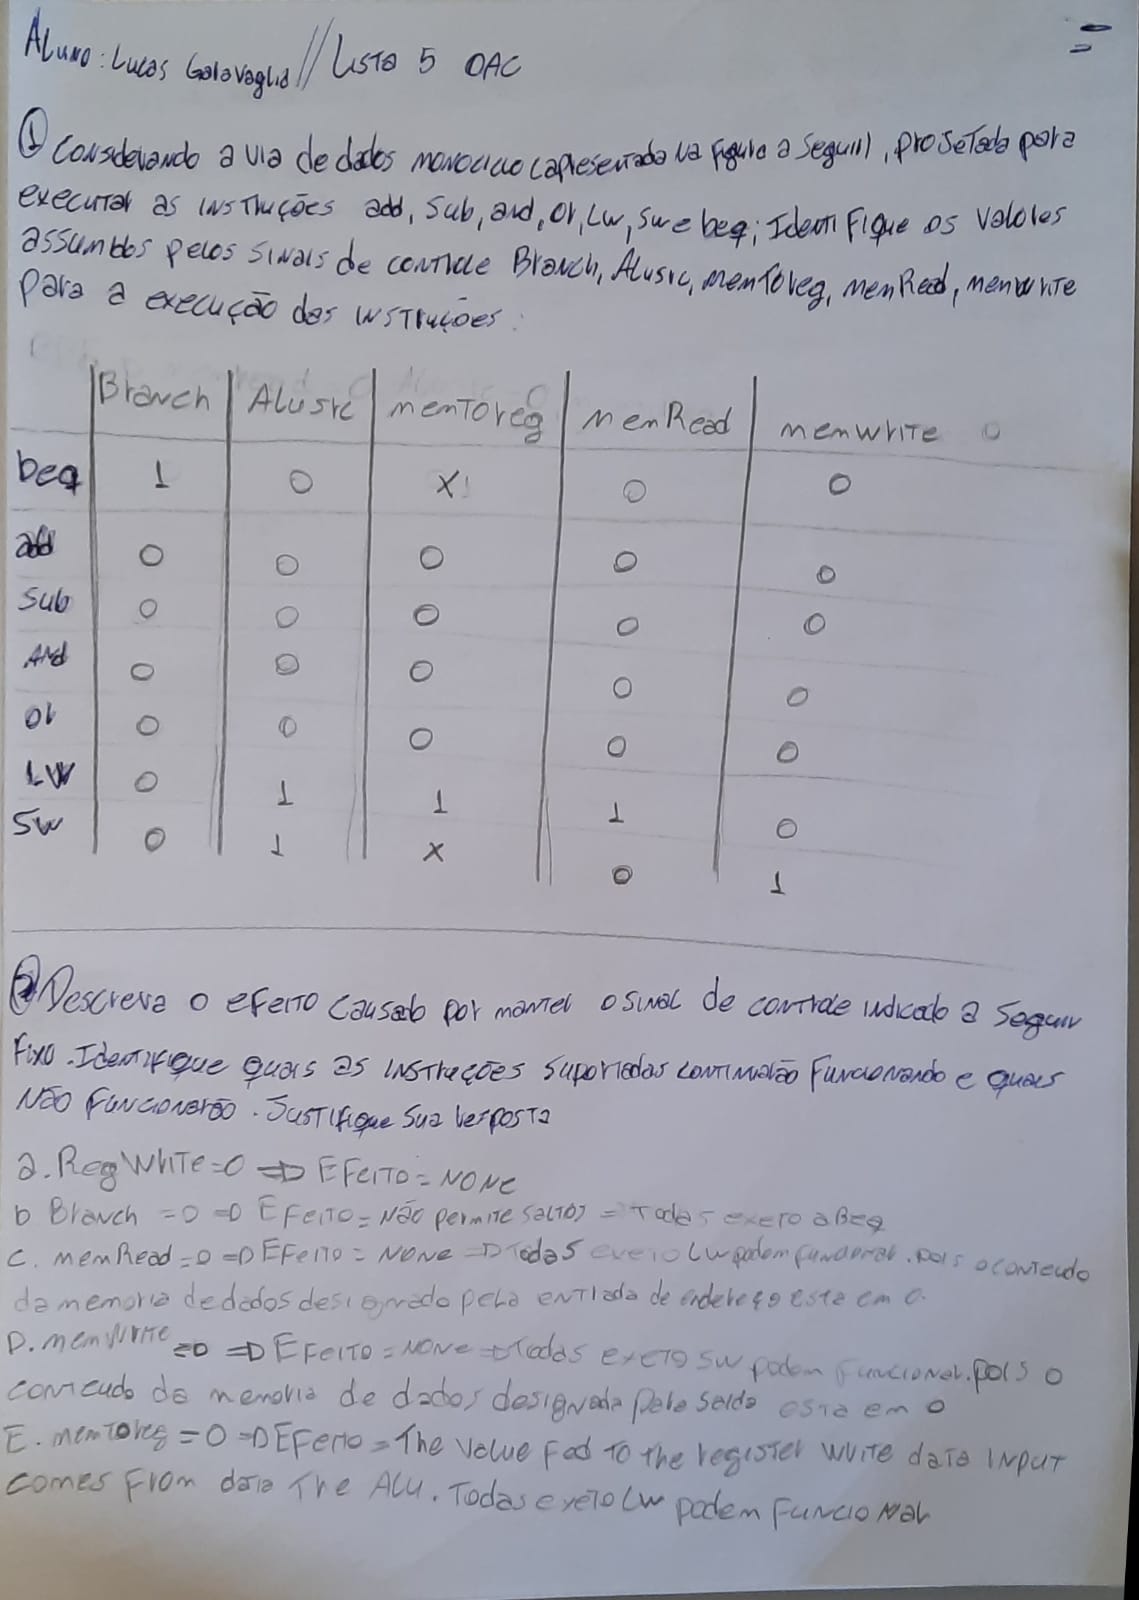 Aluno: Lucas Galavaglia // Lista 5 OAC
① Considerando a via de dados monociclo (apresentada na figura a seguir), projetada para
executar as instruções add, sub, and, or, Lw, sw e beq; Identifique os valores
assumidos pelos sinais de controle Branch, Alusrc, memToreg, memRead, memwrite
para a execução das instruções:
Branch | Alusrc | memToreg | memRead | memwrite
beq 1 0 X 0 0
add 0 0 0 0 0
Sub 0 0 0 0 0
And 0 0 0 0 0
or 0 0 0 0 0
LW 0 1 1 1 0
SW 0 1 X 0 1
② Descreva o efeito causado por manter o sinal de controle indicado a seguir
fixo. Identifique quais as instruções suportadas continuarão funcionando e quais
não funcionarão. Justifique sua resposta
a. RegWrite=0 => Efeito = None
b Branch = 0 => Efeito = não permite saltos = Todas exeto a Beq
c. memRead = 0 => Efeito = None => Todas exeto Lw podem funcionar. pois o conteudo
da memoria de dados designado pela entrada de endereço esta em 0.
D. memWrite =0 => Efeito = None => Todas exeto sw podem funcionar. pois o
conteudo da memoria de dados designada pela saida esta em 0
E. memToreg = 0 => Efeito = The value fed to the register write data input
comes from data the ALU. Todas exeto Lw podem funcionar